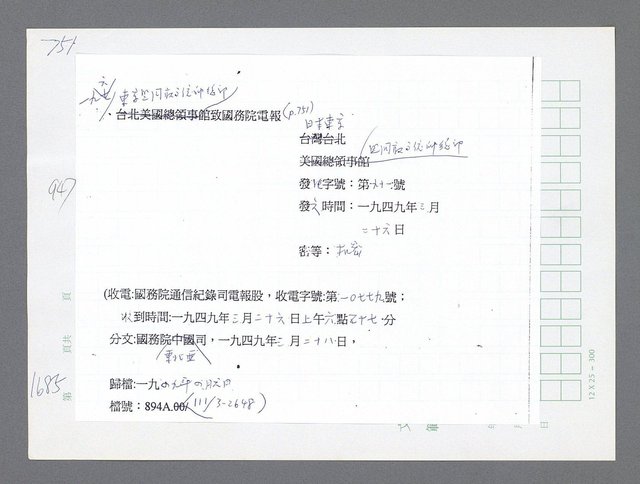 751
、台北美國總領事館致國務院電報(p.751)
日本東京
台灣台北
美國總領事館
發 字號：第六十一號
發文時間：一九四九年三月
二十六日
947
密等：機密
(收電:國務院通信紀錄司電報股，收電字號:第一〇七七九號；
收到時間:一九四九年三月二十六日上午六點五十七分
分文:國務院中國司，一九四九年三月二十八日，
東北亞
頁共 頁
歸檔:一九四九年四月
1685
第
檔號：894A.00/(111/3-2648)
12 X 25 = 300
年
日